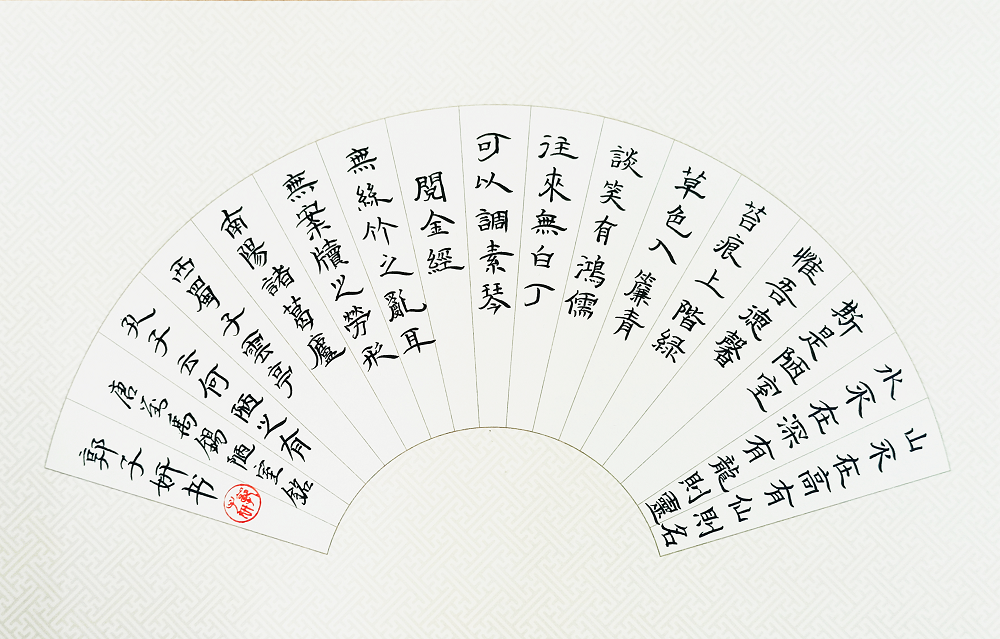 山不在高有仙則名
水不在深有龍則靈
斯是陋室
惟吾德馨
苔痕上階緑
草色入簾青
談笑有鴻儒
往來無白丁
可以調素琴
閱金經
無絲竹之亂耳
無案牘之勞形
南陽諸葛廬
西蜀子雲亭
孔子云何陋之有
唐劉禹錫陋室銘
郭子妍书